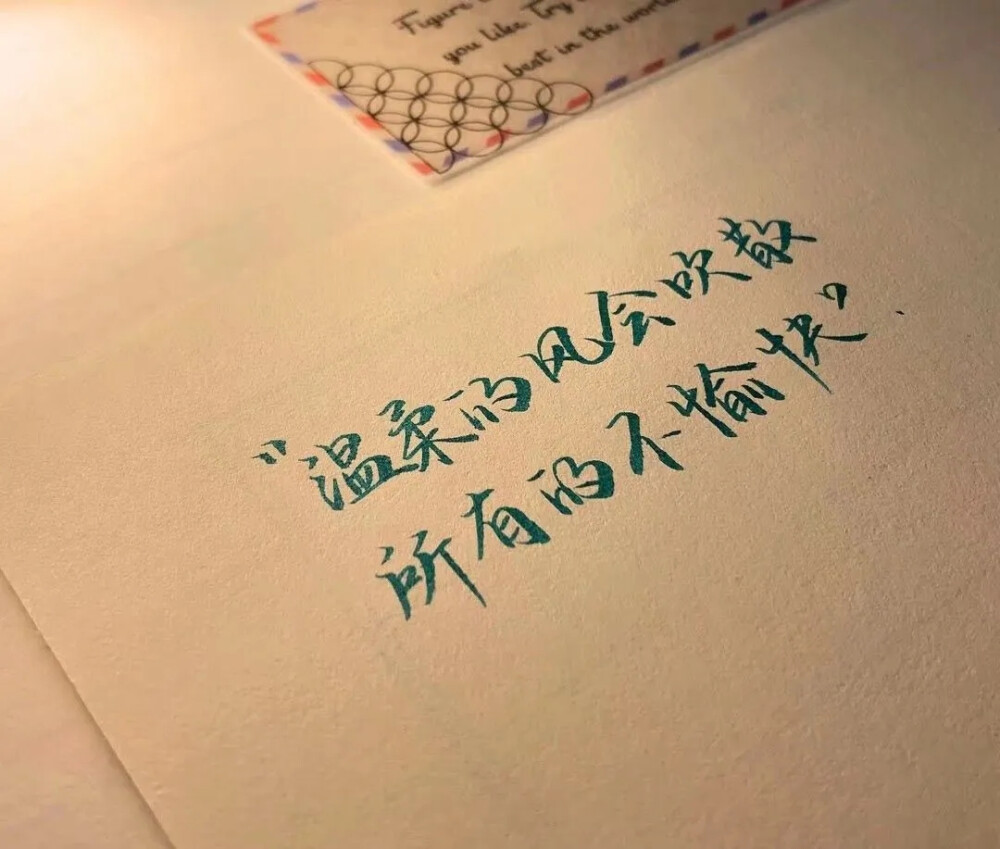 Figure
you like. Try
best in the world
“温柔的风会吹散
所有的不愉快”